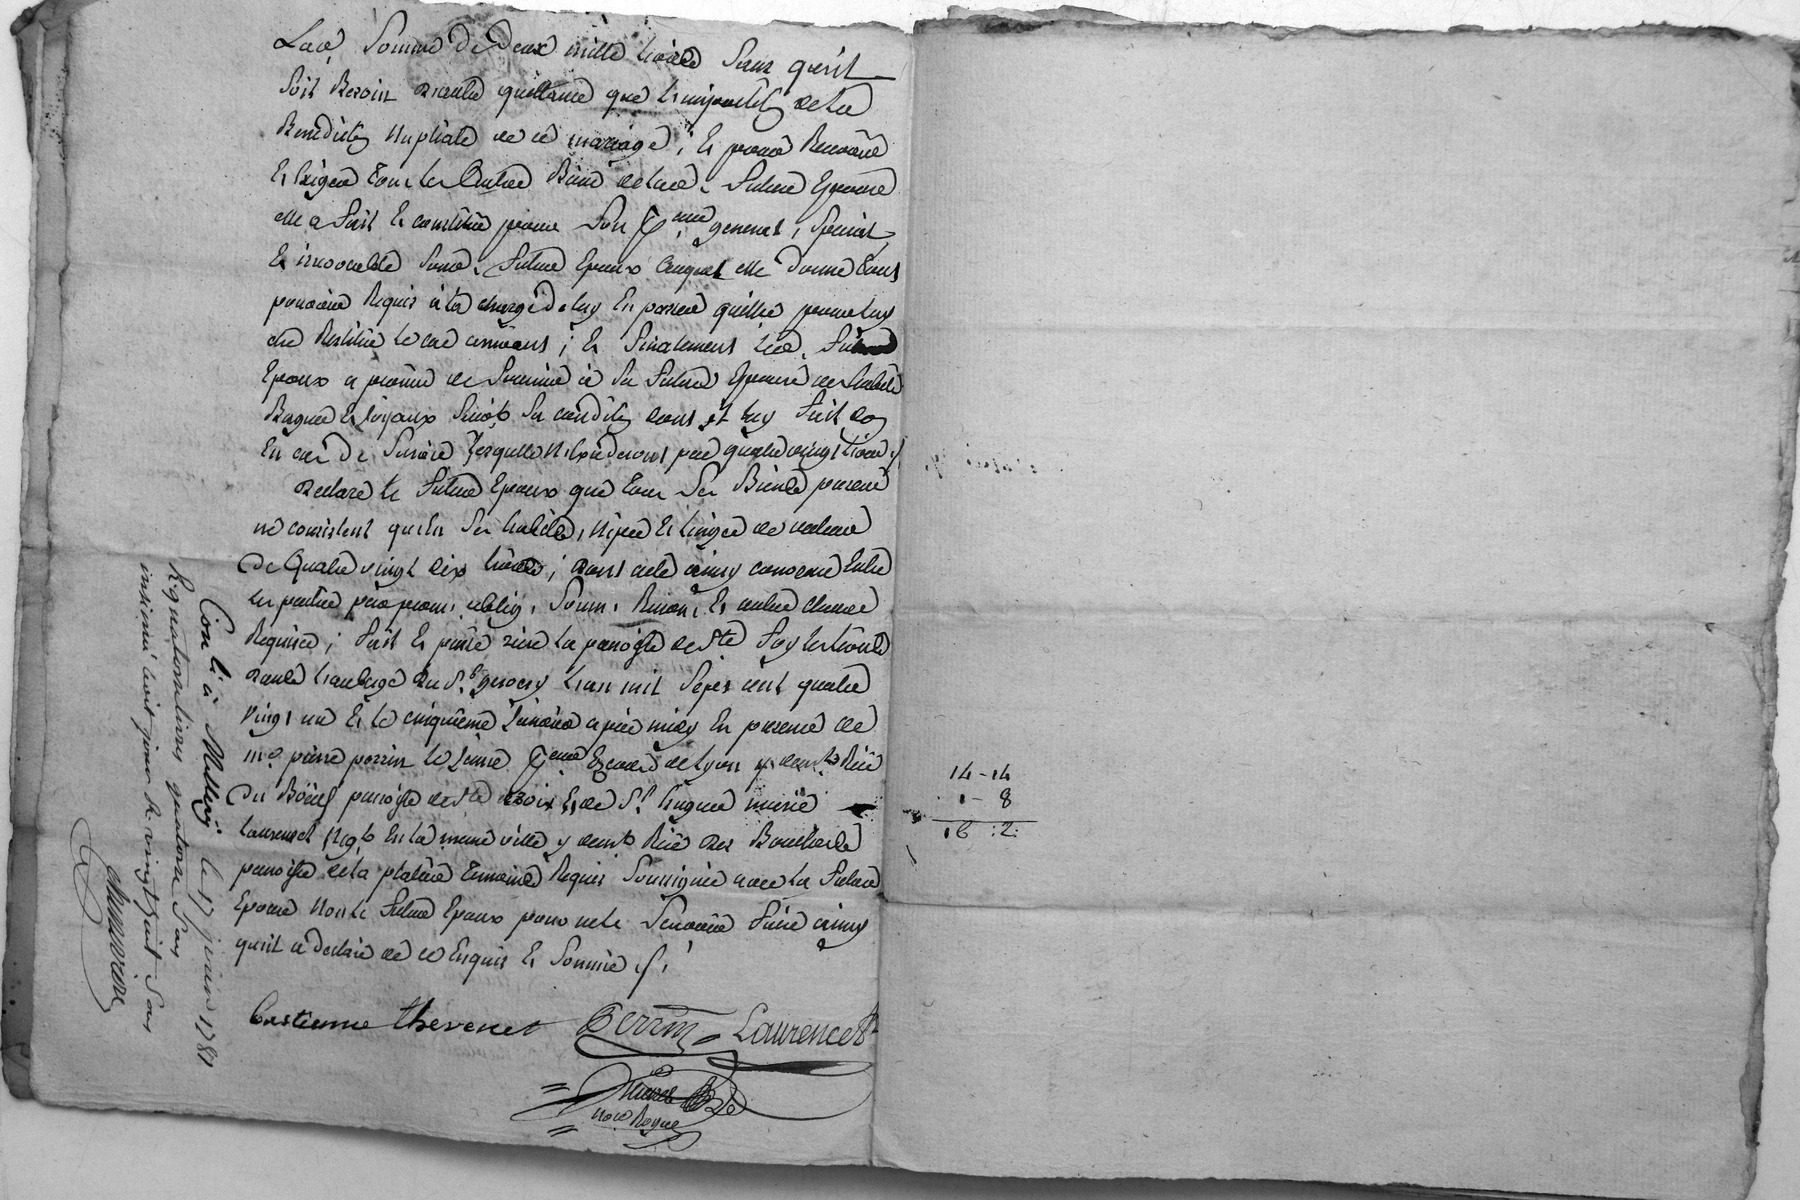 Lad. Somme De Deux mille livres Sans quil
Soit Besoin dautre quittance que
Benediction Nuptiale de ce mariage ; Et pour Recevoir
Et Exiger tous les Autres Biens de lad. future Epouse
elle a fait Et constitué pour Son general, special
Et irrevocable Led. futur Epoux auquel elle donne tous
pouvoirs Requis à la charge de luy En passer quittce pour luy
etre Restitué le cas avenant ; Et finalement led. futur
Epoux a promis de fournir à Sa future Epouse des habits
Bagues Et joyaux Selon Sa condition dont il luy fait don
En cas de Survie Lesquels N'Excederont pas quatre vingt livres
Declare le futur Epoux que tous Ses Biens presents
ne consistent qu'En Ses habits, nipes Et linges de valeur
De Quatre vingt dix livres ; dont acte ainsy convenu Entre
les parties par prom. oblig. Soum. Renon. Et autres clauses
Requises ; fait Et passé riere la paroisse de Ste foy les Lions
dans l'auberge du Sr. L'an mil Sept cent quatre
vingt un Et le cinquieme Janvier apres midy En presence de
me. pierre perrin le Jeune Ez cours de Lyon y demt. Rüe
Du Bœuf paroisse de Ste croix Et de Sr. hugues marie
Laurencet Negt. En la meme ville y demt. Rüe des Bouchers
paroisse de la platiere temoins Requis Soussignés avec la future
Epouse Non le futur Epoux pour ne le Scavoir faire ainsy
quil a declaré de ce Enquis Et Sommé ./.
bastienne thevenet Perrin Laurencet
Nore Royal
Conlé à le 17 janvier 1781
Reçu quatorze livres quatorze Sous
insinué huit Sous
14 - 14
1 - 8
16 : 2